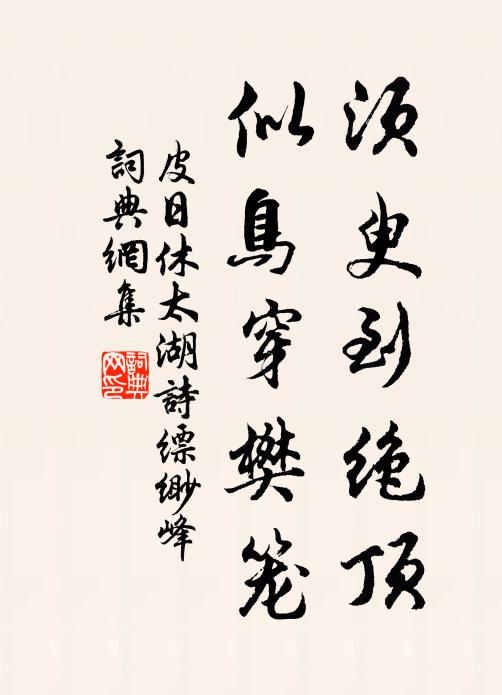 须臾到绝顶
似鳥穿樊笼
皮日休太湖詩縹緲峰
詞典網集
詞典网印